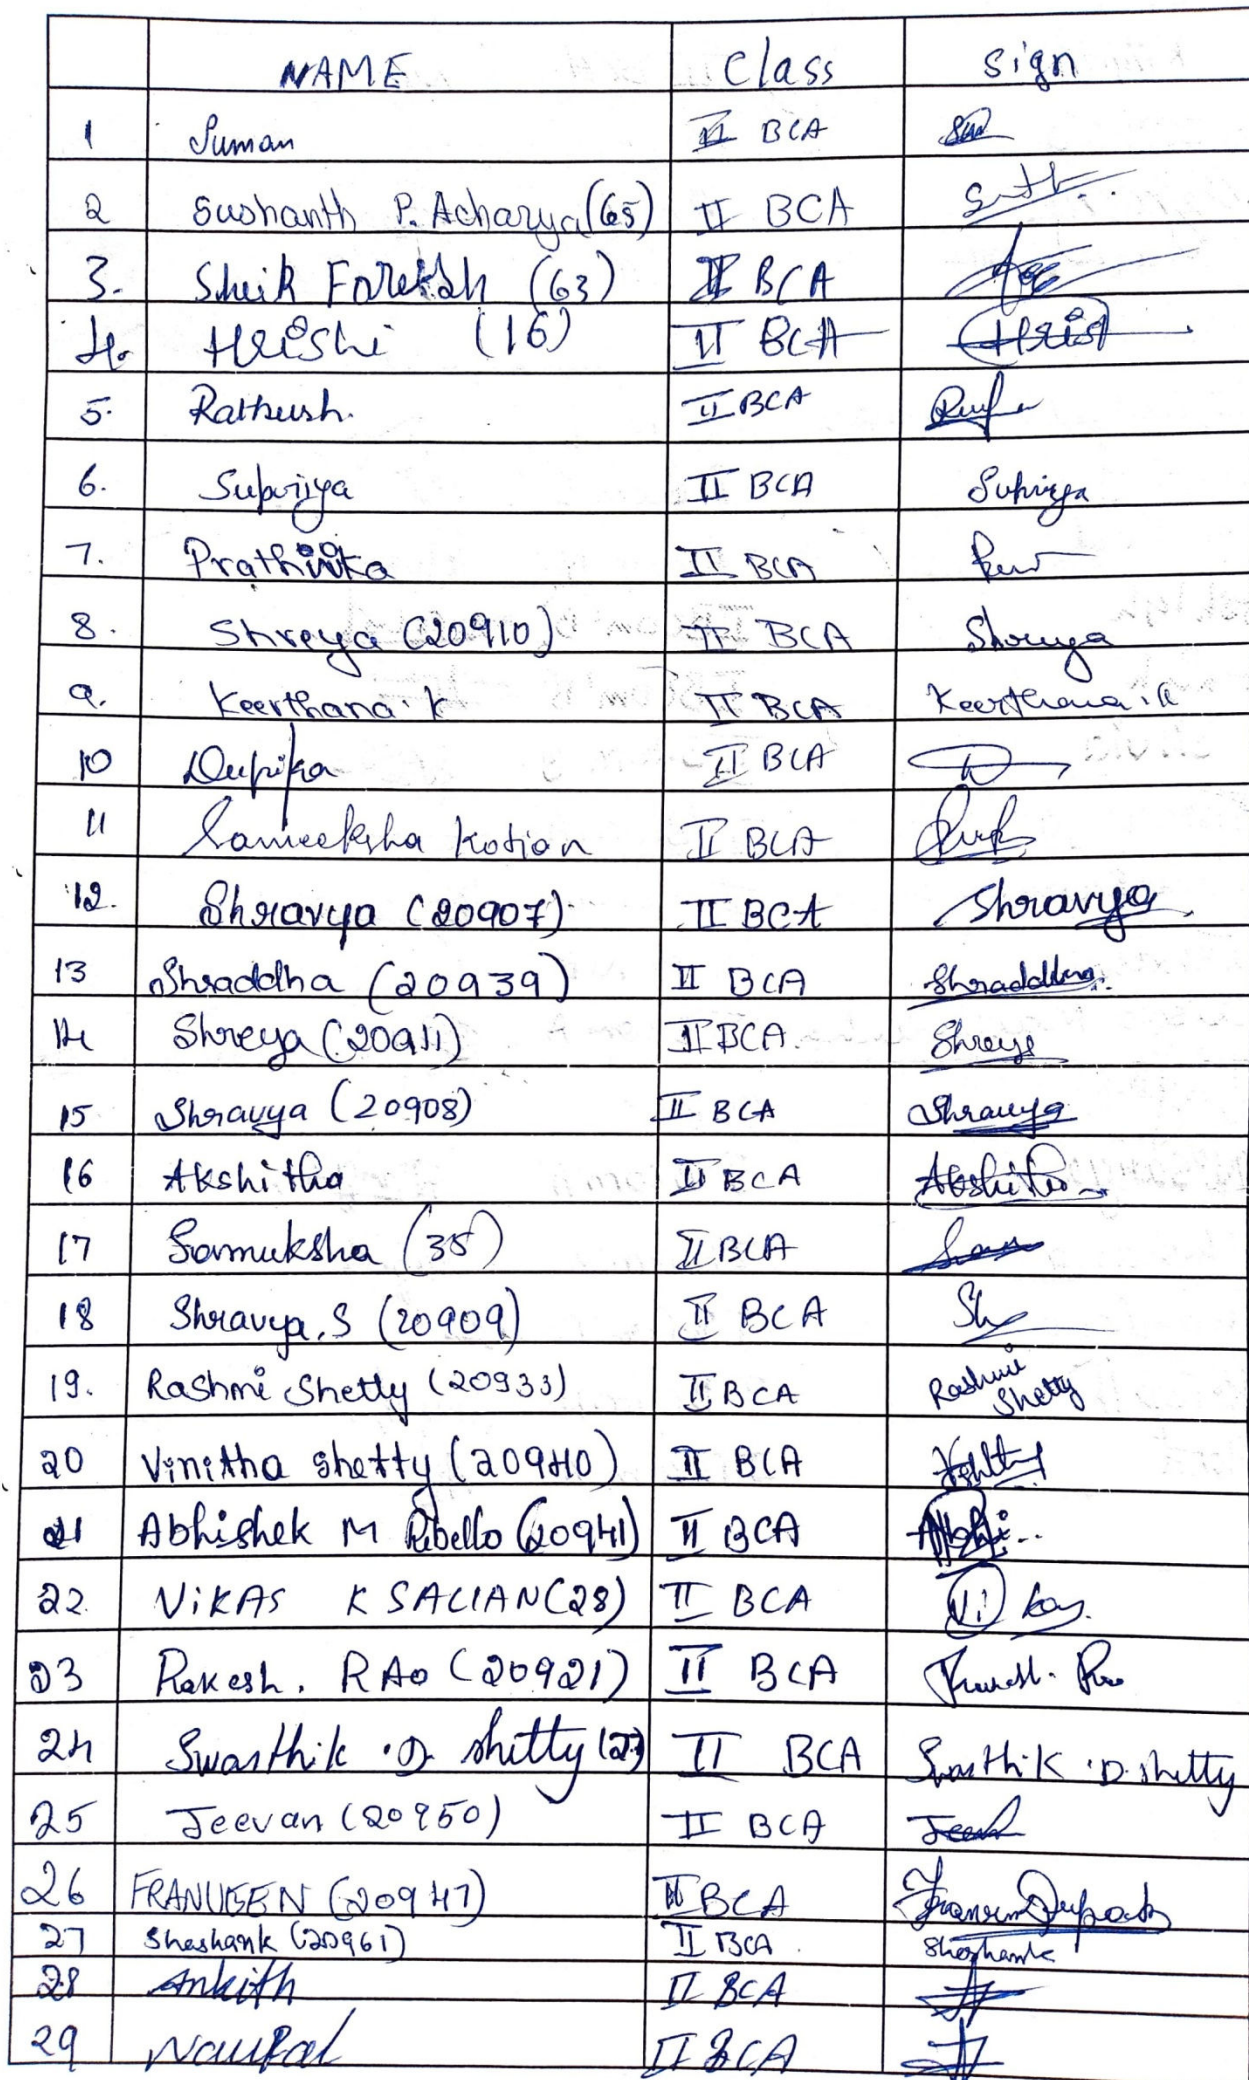 NAME Class Sign
1 Suman II BCA
2 Sushanth P. Acharya (65) II BCA
3. Sheik (63) II BCA
4. Hrishi (16) II BCA Hrishi
5. II BCA
6. Supriya II BCA Supriya
7. II BCA
8. Shreya (20910) II BCA Shreya
9. Keerthana. K II BCA Keerthana. K
10 II BCA
11 Sameeksha Kotian II BCA
12. Shravya (20907) II BCA Shravya
13 Shraddha (20939) II BCA Shraddha
14 Shreya (20911) II BCA. Shreya
15 Shravya (20908) II BCA Shravya
16 Akshitha II BCA Akshitha
17 Samuksha (35) II BCA
18 Shravya. S (20909) II BCA Sh
19. Rashmi Shetty (20933) II BCA Rashmi Shetty
20 Vinitha Shetty (20940) II BCA
21 Abhishek M Ribello (20941) II BCA Abhi..
22. ViKAS K SALIAN (28) II BCA Vi kas.
23 Rakesh. RAO (20921) II BCA
24 Swasthik .D. Shetty (27) II BCA Swasthik .D. Shetty
25 Jeevan (20950) II BCA Jeev
26 (20947) II BCA
27 Shashank (20961) II BCA. Shashank
28 Ankith II BCA
29 Naufal II BCA